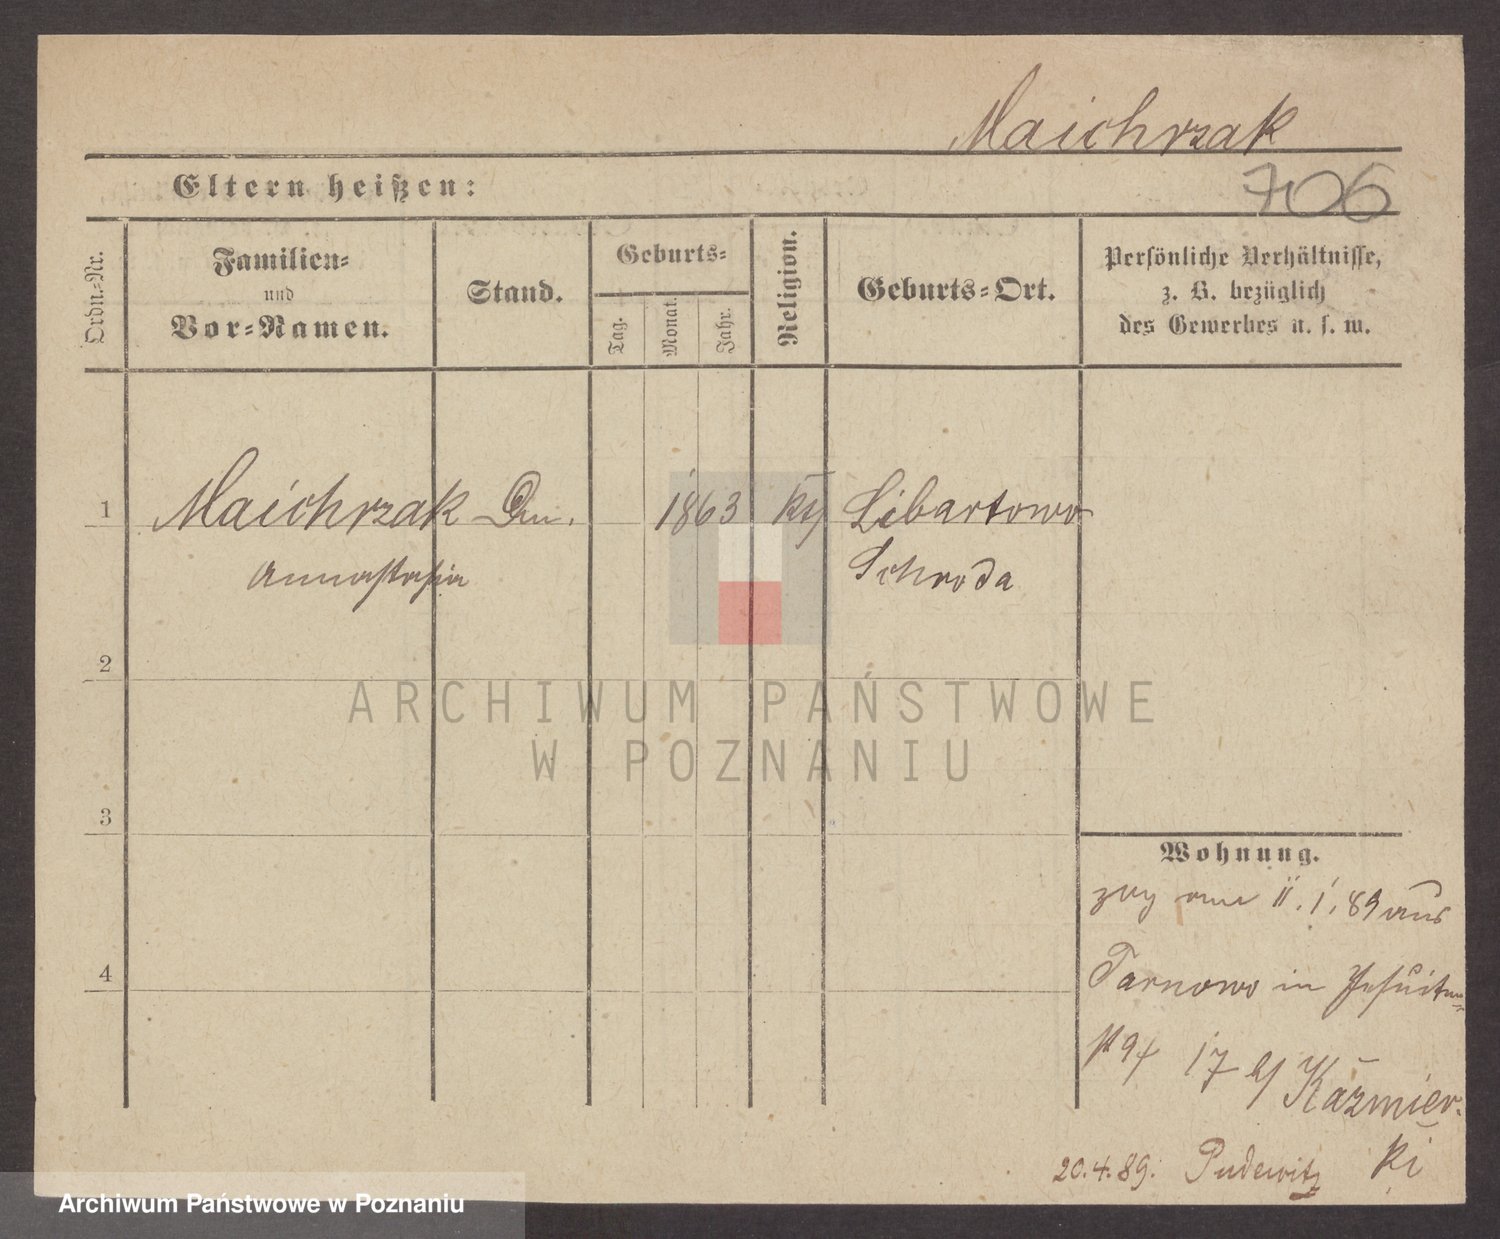 Maichrzak
Eltern heißen:
706
Ordn.-Nr.
Familien-
und
Vor-Namen.
Stand.
Geburts-
Tag.
Monat.
Jahr.
Religion.
Geburts-Ort.
Persönliche Verhältnisse,
z. B. bezüglich
des Gewerbes u. s. w.
1
Maichrzak
1863
Libartowo
Schroda
2
ARCHIWUM PAŃSTWOWE
W POZNANIU
3
Wohnung.
zug 1.89 aus
4
Tarnowo in Jesuiten-
17 b/ Kaźmier-
20.4.89. Pudewitz ki
Archiwum Państwowe w Poznaniu